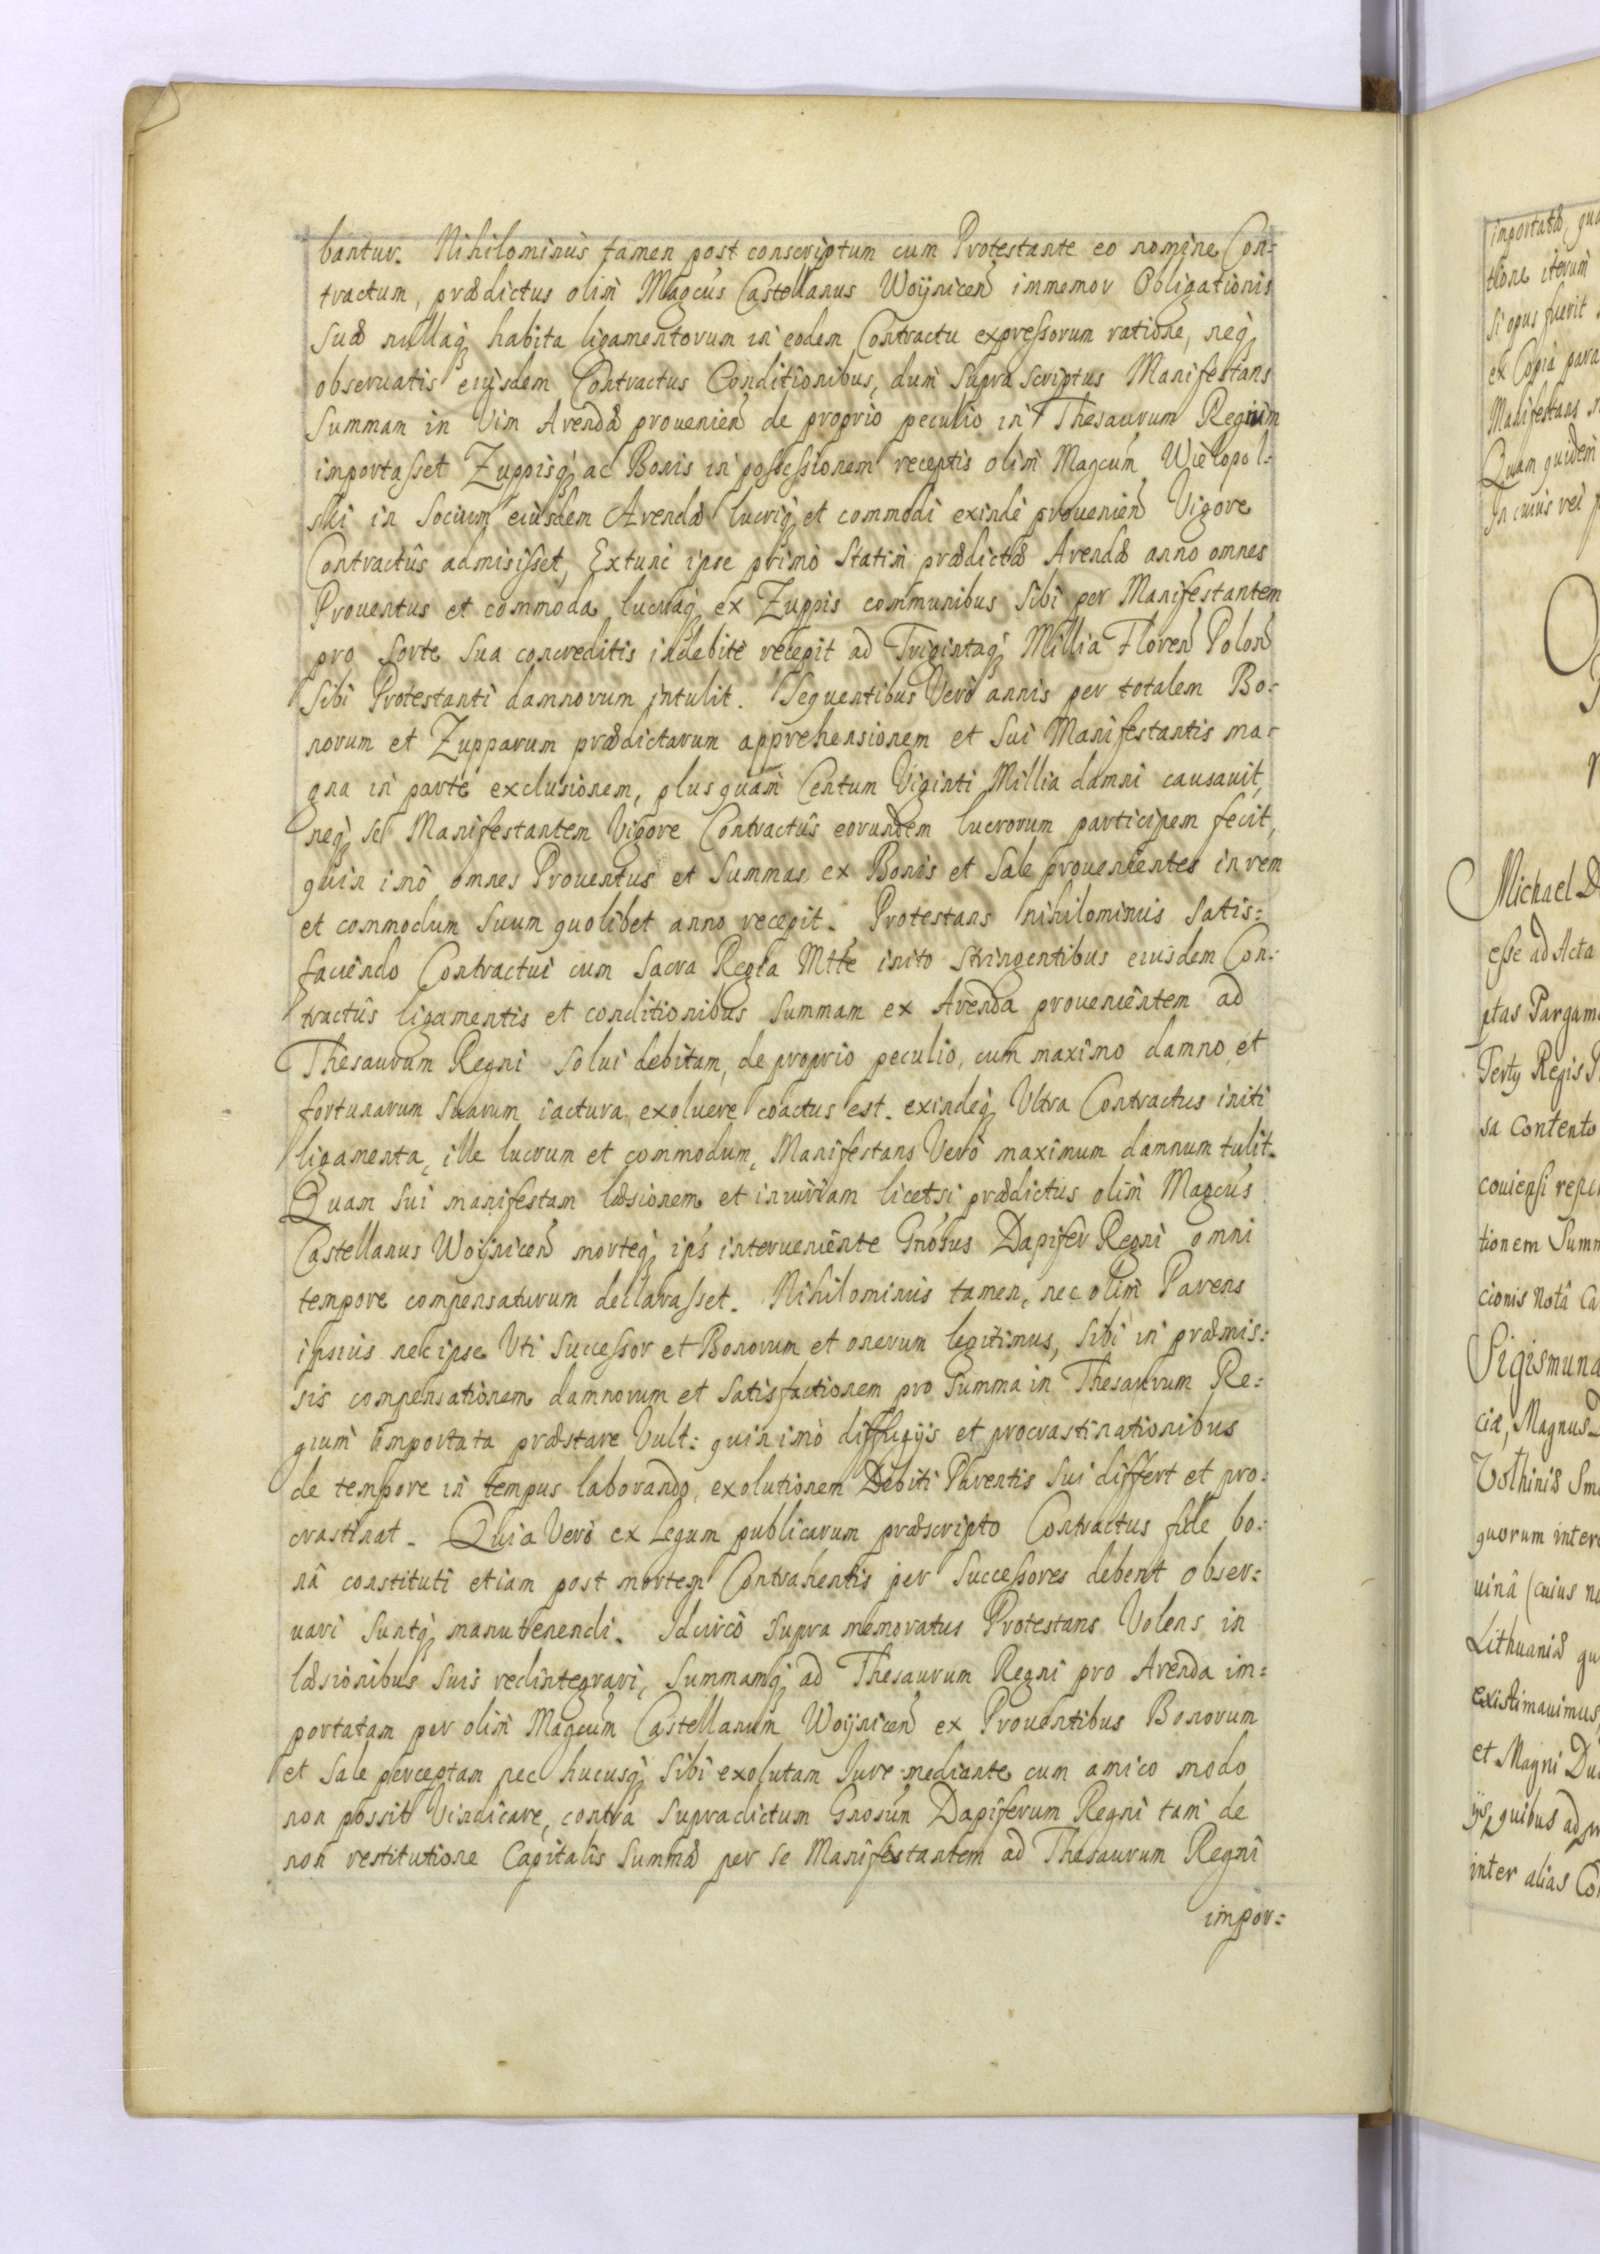 bantur. Nihilominùs tamen post conscriptum cum Protestante eo nomine Con:
tractum, prædictus olim Magcus Castellanus Woynicen immemor Obligationis
suæ nullaq habita ligamentorum in eodem Contractu expressorum ratione, neq
obseruatis eiusdem Contractus Conditionibus, dum supra scriptus Manifestans
summam in Vim Arendæ prouenien de proprio peculio in Thesaurum Regium
importasset Zuppisq ac Bonis in possessionem receptis olim Magcum Wielopol:
ski in Socium eiusdem Arendæ lucriq et commodi exindè prouenien Vigore
Contractûs admisisset, Extunc ipse primò statim prædictæ Arendæ anno omnes
Prouentus et commoda lucraq ex Zuppis communibus sibi per Manifestantem
pro sorte sua concreditis indebitè recepit ad Trigintaq Millia Floren Polon
sibi Protestanti damnorum intulit. Sequentibus Verò annis per totalem Bo:
norum et Zupparum prædictarum apprehensionem et sui Manifestantis ma:
gna in parte exclusionem, plus quam Centum Viginti Millia damni causauit,
neq se Manifestantem Vigore Contractûs eorundem lucrorum participem fecit,
quin imò omnes Prouentus et summas ex Bonis et Sale prouenientes in rem
et commodum suum quolibet anno recepit. Protestans nihilominus satis:
faciendo Contractui cum Sacra Regia Mtte inito stringentibus eiusdem Con:
tractûs ligamentis et conditionibus summam ex Arenda prouenientem ad
Thesaurum Regni solui debitam, de proprio peculio, cum maximo damno et
fortunarum suarum iactura exoluere coactus est. exindeq Ultra Contractus initi
ligamenta, ille lucrum et commodum, Manifestans Verò maximum damnum tulit.
Quam sui manifestam læsionem et iniuriam licetsi prædictus olim Magcus
Castellanus Woynicen morteq ips interueniente Gnosus Dapifer Regni omni
tempore compensaturum declarasset. Nihilominus tamen, nec olim Parens
ipsius nec ipse Uti Successor et Bonorum et onerum legitimus, sibi in præmis:
sis compensationem damnorum et satisfactionem pro summa in Thesaurum Re:
gium importata præstare Vult: quin imò diffugijs et procrastinationibus
de tempore in tempus laborando, exolutionem Debiti Parentis sui differt et pro:
crastinat. Quia Verò ex Legum publicarum præscripto Contractus fide bo:
nâ constituti etiam post mortem Contrahentis per Successores debent obser:
uari suntq manutenendi. Idcircò supra memoratus Protestans Volens in
læsionibus suis redintegrari, summamq ad Thesaurum Regni pro Arenda im:
portatam per olim Magcum Castellanum Woynicen ex Prouentibus Bonorum
et Sale perceptam nec hucusq sibi exolutam Iure mediante cum amico modo
non possit Vindicare, contra supradictum Gnosum Dapiferum Regni tam de
non restitutione Capitalis summæ per se Manifestantem ad Thesaurum Regni
impor:
importatæ,
tione iterum
si opus fuerit
ex Copia
Manifestans
Quam quidem
In cuius rei
Michael
esse ad Acta
Regis
sa Contento
tionem
cionis Notâ
Sigismund
ciæ, Magnus
quorum
uinâ (cuius
Lithuaniæ
existimauimus,
et Magni
quibus
inter alias